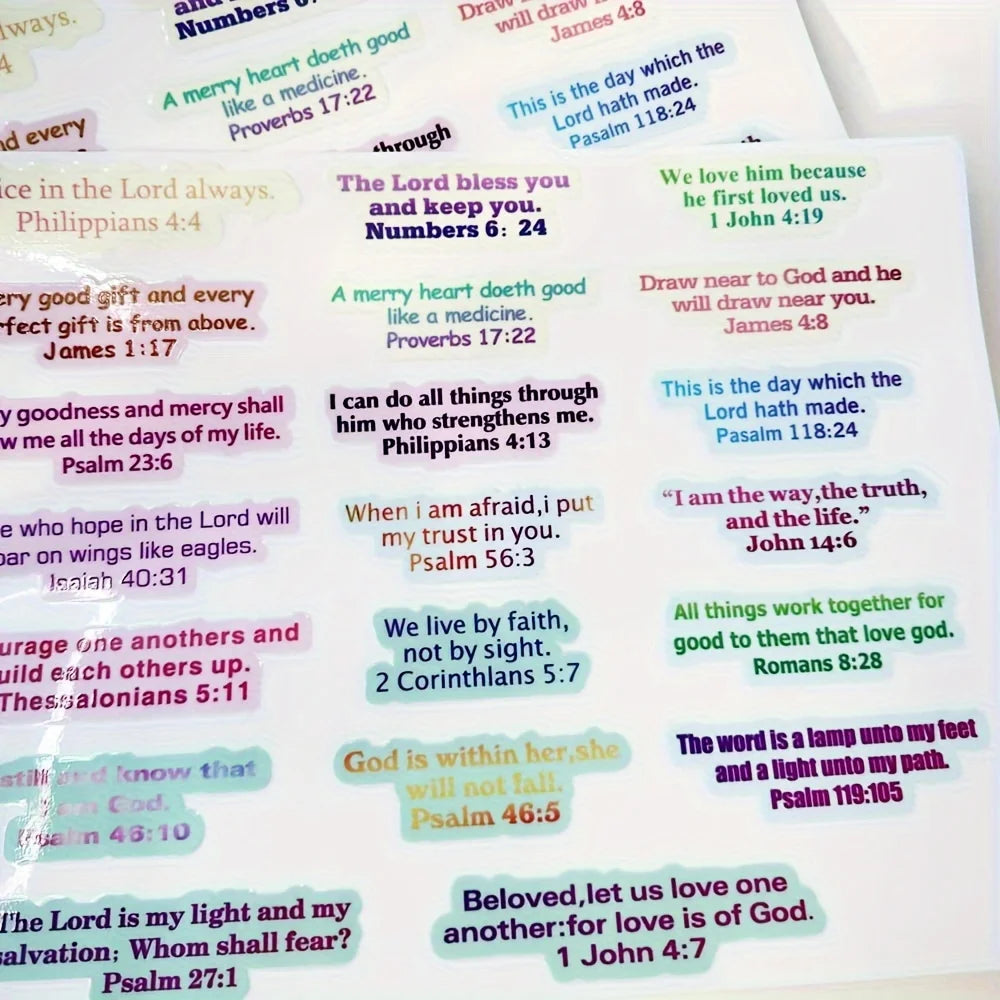 lways.
4
and
Numbers 6:
Draw
will draw
James 4:8
A merry heart doeth good
like a medicine.
Proverbs 17:22
This is the day which the
Lord hath made.
Pasalm 118:24
nd every
through
ice in the Lord always.
Philippians 4:4
The Lord bless you
and keep you.
Numbers 6: 24
We love him because
he first loved us.
1 John 4:19
ery good gift and every
rfect gift is from above.
James 1:17
A merry heart doeth good
like a medicine.
Proverbs 17:22
Draw near to God and he
will draw near you.
James 4:8
y goodness and mercy shall
w me all the days of my life.
Psalm 23:6
I can do all things through
him who strengthens me.
Philippians 4:13
This is the day which the
Lord hath made.
Pasalm 118:24
e who hope in the Lord will
oar on wings like eagles.
Isaiah 40:31
When i am afraid,i put
my trust in you.
Psalm 56:3
“I am the way,the truth,
and the life.”
John 14:6
urage one anothers and
uild each others up.
Thessalonians 5:11
We live by faith,
not by sight.
2 Corinthlans 5:7
All things work together for
good to them that love god.
Romans 8:28
still and know that
I am God.
Psalm 46:10
God is within her,she
will not fall.
Psalm 46:5
The word is a lamp unto my feet
and a light unto my path.
Psalm 119:105
The Lord is my light and my
salvation; Whom shall fear?
Psalm 27:1
Beloved,let us love one
another:for love is of God.
1 John 4:7